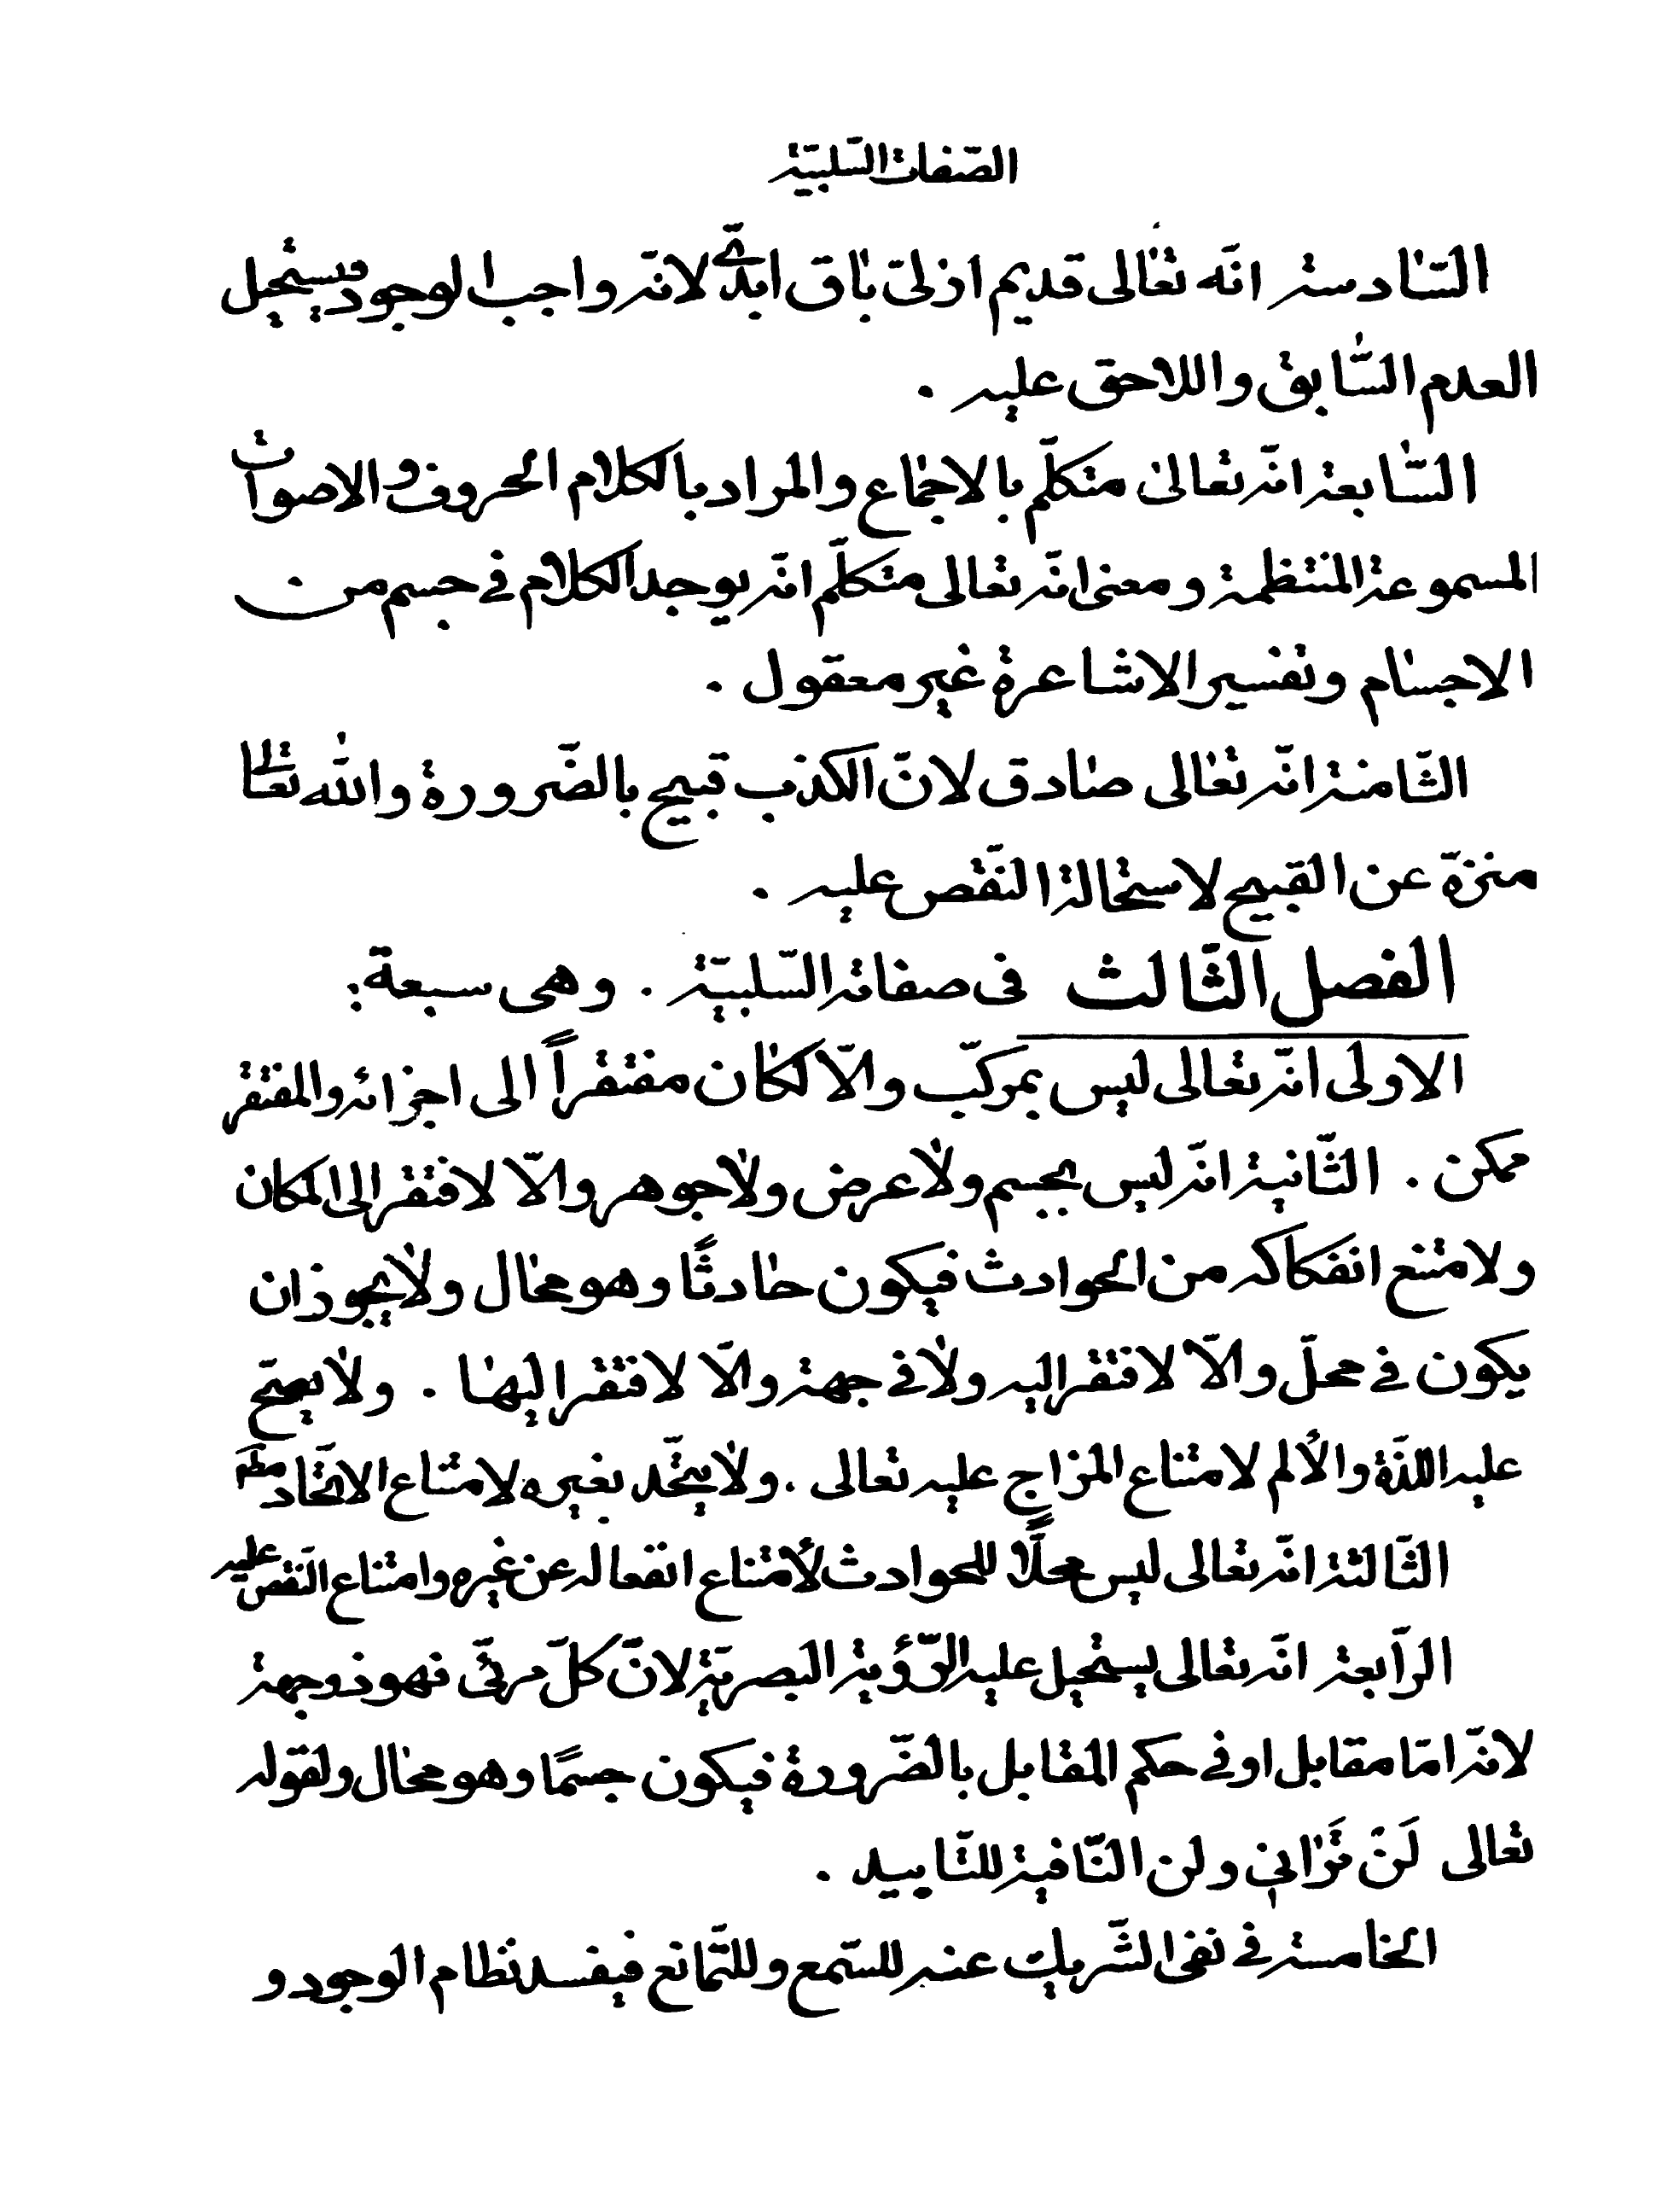 الصّفات السّلبيّة
السّادسة انّه تعالى قديم ازلىّ باق ابدىّ لانّه واجب الوجود فيستحيل
العدم السّابق واللاحق عليه .
السّابعة انّه تعالى متكلّم بالاجماع والمراد بالكلام الحروف والاصوات
المسموعة المنتظمة ومعنى انّه تعالى متكلّم انّه يوجد الكلام في جسم من
الاجسام وتفسير الاشاعرة غير معقول .
الثّامنة انّه تعالى صادق لانّ الكذب قبيح بالضّرورة والله تعالى
منزّه عن القبيح لاستحالة النّقص عليه .
الفصل الثّالث في صفاته السّلبيّة . وهى سبعة :
الاولى انّه تعالى ليس بمركّب والّا لكان مفتقراً الى اجزائه والمفتقر
ممكن . الثّانية انّه ليس بجسم ولا عرض ولا جوهر والّا لافتقر الى المكان
ولامتنع انفكاكه من الحوادث فيكون حادثًا وهو محال ولا يجوز ان
يكون في محلّ والّا لافتقر اليه ولا في جهة والّا لافتقر اليها . ولا يصحّ
عليه اللذّة والألم لامتناع المزاج عليه تعالى . ولا يتّحد بغيره لامتناع الاتّحاد مطلقاً
الثّالثة انّه تعالى ليس محلًّا للحوادث لأمتناع انفعاله عن غيره وامتناع النّقص عليه
الرّابعة انّه تعالى يستحيل عليه الرّؤية البصريّة لانّ كلّ مرئىّ فهو ذو جهة
لانّه امّا مقابل او في حكم المقابل بالضّرورة فيكون جسمًا وهو محال ولقوله
تعالى لَنْ تَرٰاني ولن النّافية للتّاييد .
الخامسة في نفى الشّريك عنه للسّمع وللتّمانع فيفسد نظام الوجود و